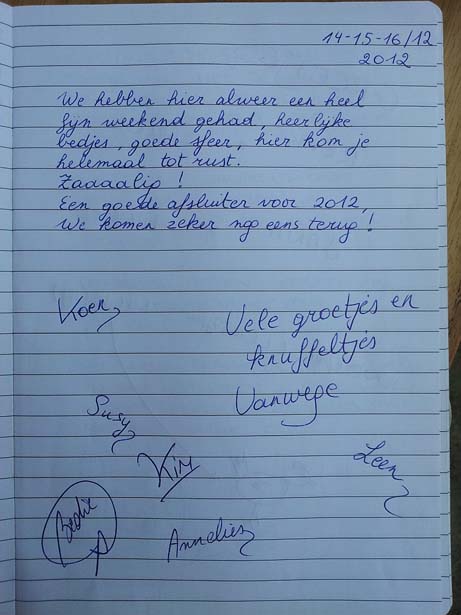 14-15-16/12
2012
We hebben hier alweer een heel
fijn weekend gehad, heerlijke
bedjes, goede sfeer, hier kom je
helemaal tot rust.
Zaaaalig !
Een goede afsluiter voor 2012,
We komen zeker ngo eens terug !
Koen
Vele groetjes en
knuffeltjes
Vanwege
Susy
Kim
Leen
Annelies